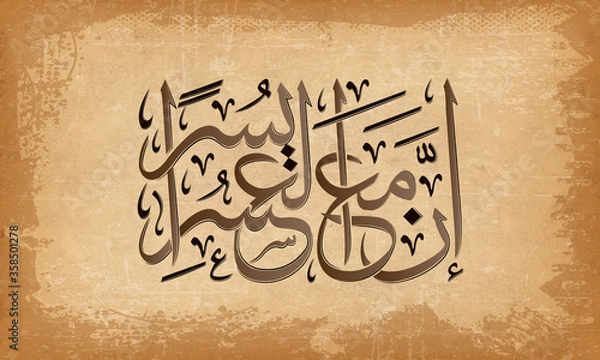 إِنَّ مَعَ الْعُسْرِ يُسْرًا
Adobe Stock | #358501278